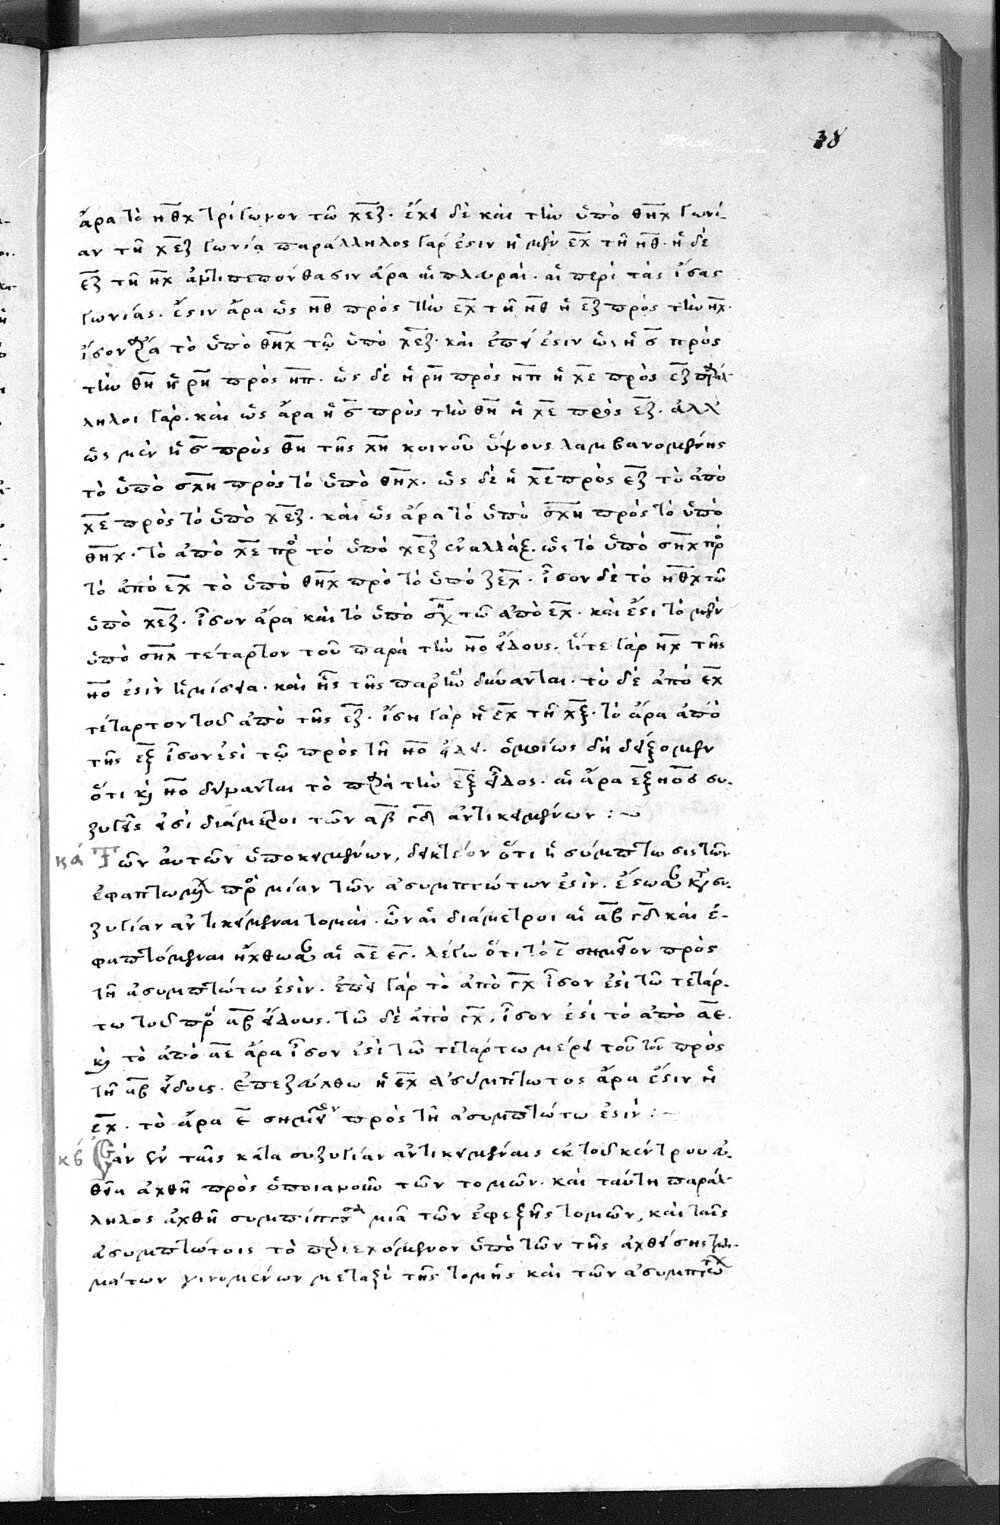 38
ἄρα τὸ ηθχ τρίγωνον τῶ χεξ. ἔχει δὲ καὶ τὴν ὑπὸ θηχ γωνί-
αν τῆ χεξ γωνία παράλληλος γάρ ἐστιν ἡ μὲν εχ τῆ ηθ. ἡ δὲ
εξ τῆ ηχ ἀντιπεπόνθασιν ἄρα αἱ πλευραὶ. αἱ περὶ τὰς ἴσας
γωνίας. ἔστιν ἄρα ὡς ηθ πρὸς τὴν εχ τῆ ηθ ἡ εξ πρὸς τὴν ηχ.
ἴσον ἄρα τὸ ὑπὸ θηχ τῶ ὑπὸ χεξ. καὶ ἐπεί ἐστιν ὡς ἡ σ πρὸς
τὴν θη ἡ ρη πρὸς ηπ. ὡς δὲ ἡ ρη πρὸς ηπ ἡ χε πρὸς εξ παράλ-
ληλοι γάρ. καὶ ὡς ἄρα ἡ σ πρὸς τὴν θη ἡ χε πρὸς εξ. ἀλλ'
ὡς μὲν ἡ σ πρὸς θη τῆς χη κοινοῦ ὕψους λαμβανομένης
τὸ ὑπὸ σχη πρὸς τὸ ὑπὸ θηχ. ὡς δὲ ἡ χε πρὸς εξ τὸ ἀπὸ
χε πρὸς τὸ ὑπὸ χεξ. καὶ ὡς ἄρα τὸ ὑπὸ σχη πρὸς τὸ ὑπὸ
θηχ. τὸ ἀπὸ χε πρὸς τὸ ὑπὸ χεξ ἐναλλάξ. ὡς τὸ ὑπὸ σηχ πρὸς
τὸ ἀπὸ εχ τὸ ὑπὸ θηχ πρὸ τὸ ὑπὸ ξεχ. ἴσον δὲ τὸ ηθχ τῶ
ὑπὸ χεξ. ἴσον ἄρα καὶ τὸ ὑπὸ σηχ τῶ ἀπὸ εχ. καὶ ἔστι τὸ μὲν
ὑπὸ σηχ τέταρτον τοῦ παρὰ τὴν ηο εἴδους. ἥτε γὰρ ηχ τῆς
ηο ἐστὶν ἡμίσεια. καὶ ησ τῆς παρ' ἣν δύνανται. τὸ δὲ ἀπὸ εχ
τέταρτον τοῦ ἀπὸ τῆς εξ. ἴση γὰρ ἡ εχ τῆ χξ. τὸ ἄρα ἀπὸ
τῆς εξ ἴσον ἐστὶ τῶ πρὸς τῆ ηο εἴδει. ὁμοίως δὴ δείξομεν
ὅτι καὶ ηο δύναται τὸ παρὰ τὴν εξ εἶδος. αἱ ἄρα εξ ηο συ-
ζυγεῖς εἰσὶ διάμετροι τῶν αβ γδ ἀντικειμένων :~
κά Τῶν αὐτῶν ὑποκειμένων, δεικτέον ὅτι ἡ σύμπτωσις τῶν
ἐφαπτομένων πρὸς μίαν τῶν ἀσυμπτώτων ἐστίν. ἔστωσαν κατὰ συ-
ζυγίαν ἀντικείμεναι τομαὶ. ὧν αἱ διάμετροι αἱ αβ γδ καὶ ἐ-
φαπτόμεναι ἤχθωσαν αἱ αε εγ. λέγω ὅτι τὸ ε σημεῖον πρὸς
τῆ ἀσυμπτώτω ἐστίν. ἐπεὶ γὰρ τὸ ἀπὸ γχ ἴσον ἐστὶ τῶ τετάρ-
τω τοῦ πρὸς αβ εἴδους. τῶ δὲ ἀπὸ γχ. ἴσον ἐστὶ τὸ ἀπὸ αε.
καὶ τὸ ἀπὸ αε ἄρα ἴσον ἐστὶ τῶ τετάρτω μέρει τοῦ πρὸς
τῆ αβ εἴδους. ἐπεζεύχθω ἡ εχ ἀσύμπτωτος ἄρα ἐστὶν ἡ
εχ. τὸ ἄρα ε σημεῖον πρὸς τῆ ἀσυμπτώτω ἐστίν :~
κβ Ἐὰν ἐν ταῖς κατὰ συζυγίαν ἀντικειμέναις ἐκ τοῦ κέντρου εὐ-
θεῖα ἀχθῆ πρὸς ὁποιανοῦν τῶν τομῶν. καὶ ταύτη παράλ-
ληλος ἀχθῆ συμπίπτουσα μιᾶ τῶν ἐφεξῆς τομῶν, καὶ ταῖς
ἀσυμπτώτοις τὸ περιεχόμενον ὑπὸ τῶν τῆς ἀχθείσης τμη-
μάτων γινομένων μεταξὺ τῆς τομῆς καὶ τῶν ἀσυμπτώτων